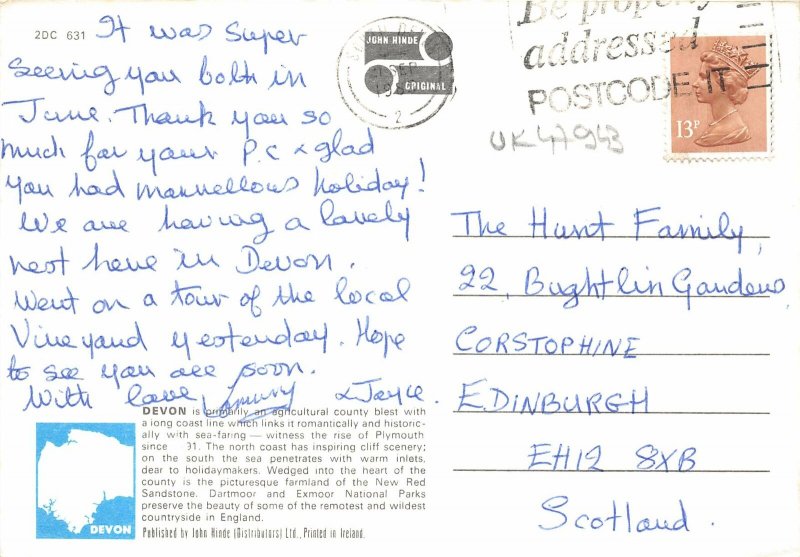 2DC 631
It was super
Seeing you both in
June. Thank you so
much for your P.C & glad
you had marvellous holiday!
We are having a lovely
rest here in Devon.
Went on a tour of the local
Vineyard yesterday. Hope
to see you all soon.
With love, & Joyce.
JOHN HINDE
ORIGINAL
SEP
2
Be properly
addressed
POSTCODE IT
13P
UK47943
The Hunt Family,
22, Bughtlin Gardens,
CORSTOPHINE
EDINBURGH
EH12 8XB
Scotland.
DEVON is primarily an agricultural county blest with
a long coast line which links it romantically and historic-
ally with sea-faring — witness the rise of Plymouth
since 91. The north coast has inspiring cliff scenery;
on the south the sea penetrates with warm inlets,
dear to holidaymakers. Wedged into the heart of the
county is the picturesque farmland of the New Red
Sandstone. Dartmoor and Exmoor National Parks
preserve the beauty of some of the remotest and wildest
countryside in England.
Published by John Hinde (Distributors) Ltd., Printed in Ireland.
DEVON